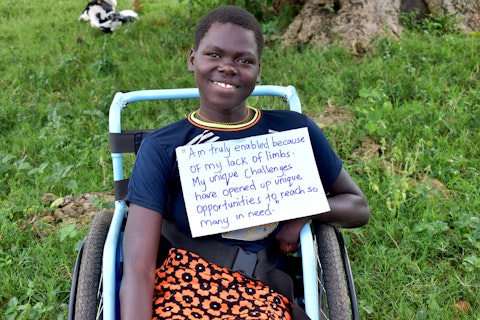 "Am truly enabled because
of my lack of limbs.
My unique Challenges
have opened up unique
Opportunities to reach so
many in need.